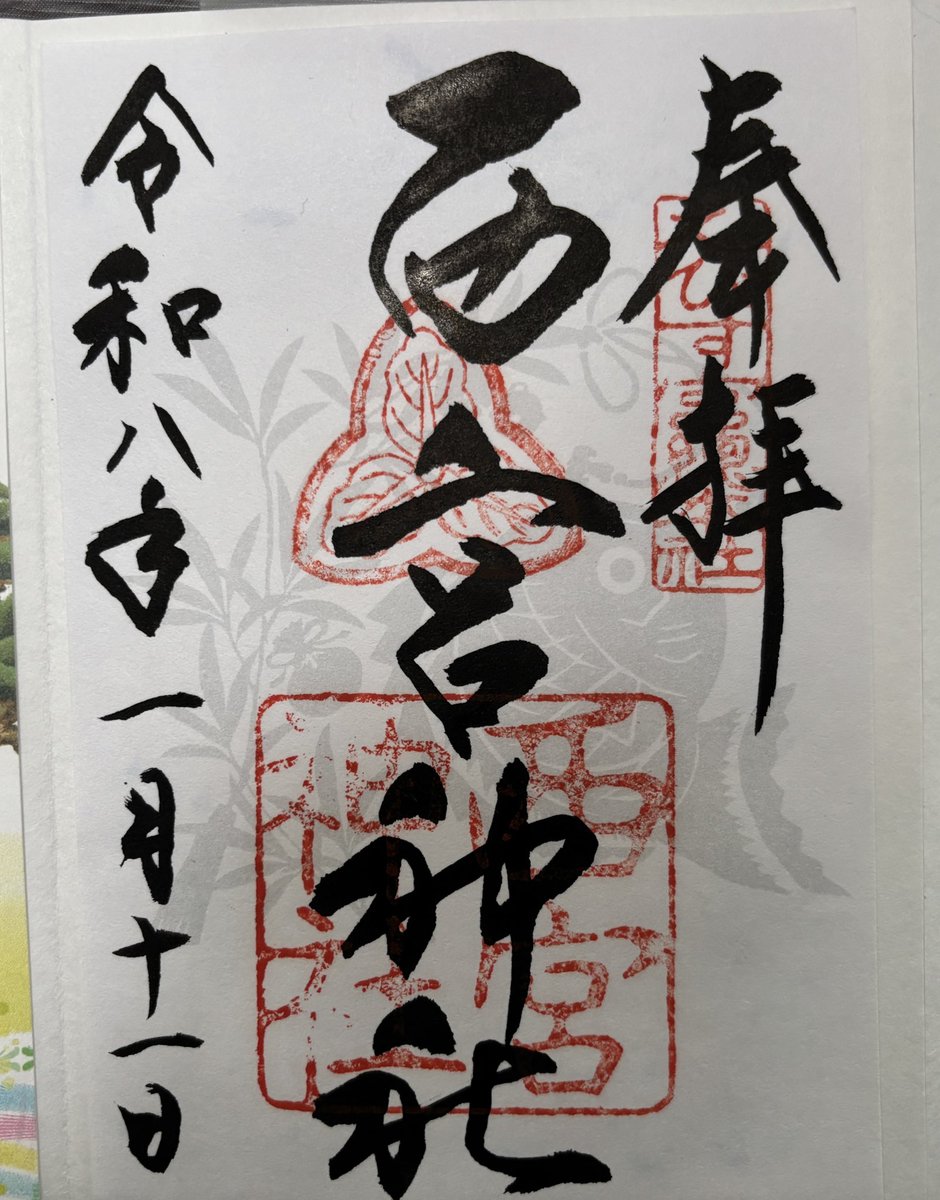 奉拝
西宮神社
西宮
神社
令和八年一月十一日